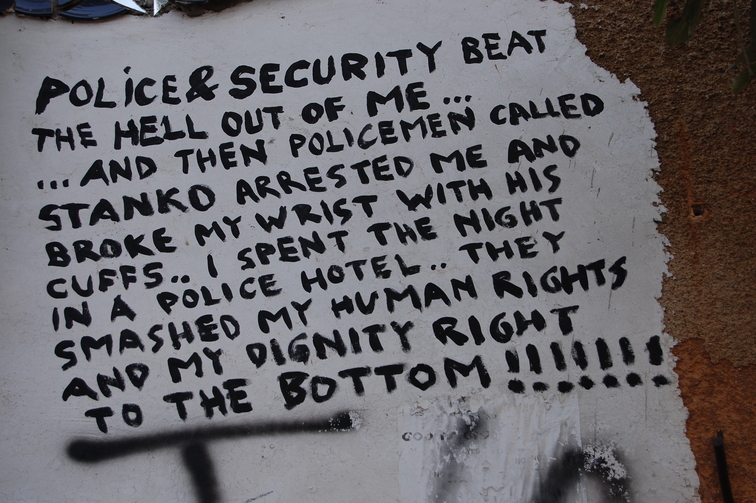 POLiCE & SECURITY BEAT
THE HELL OUT OF ME...
...AND THEN POLICEMEN CALLED
STANKO ARRESTED ME AND
BROKE MY WRIST WITH HIS
CUFFS.. I SPENT THE NIGHT
IN A POLICE HOTEL.. THEY
SMASHED MY HUMAN RIGHTS
AND MY DIGNITY RIGHT
TO THE BOTTOM !!!!!!!